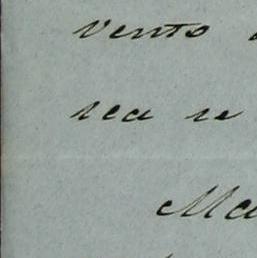 vento
rea se
Ma